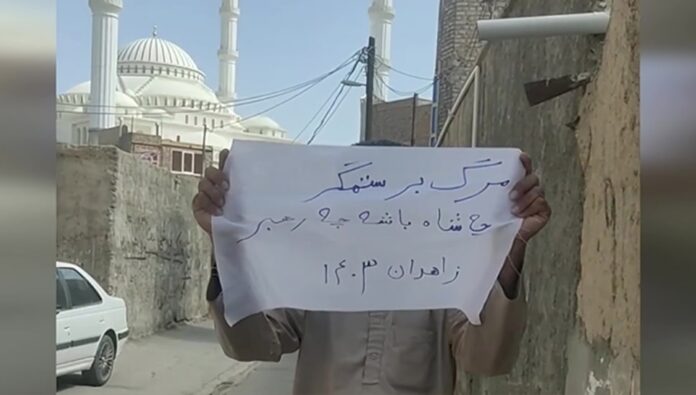 مرگ بر ستمگر
چ شاه باشه چه رهبر
زاهدان ۱۴۰۳